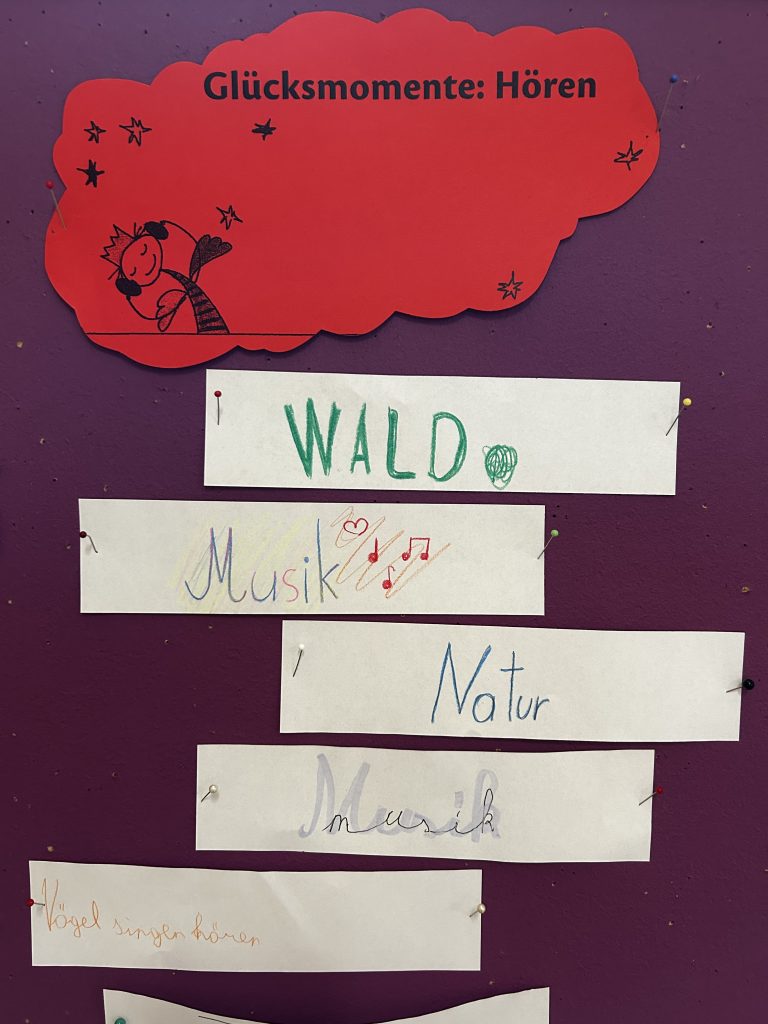 Glücksmomente: Hören
WALD
Musik
Natur
Musik
musik
Vögel singen hören